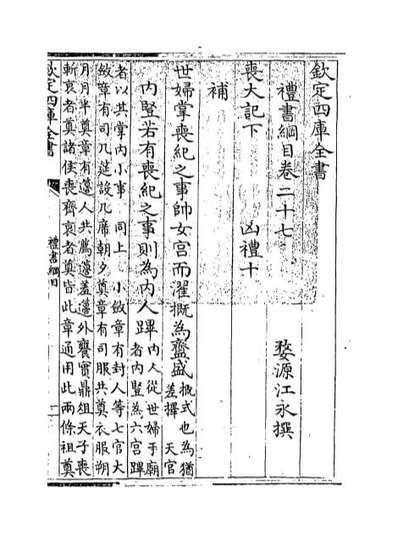 欽定四庫全書
禮書綱目卷二十七
婺源江永撰
喪大記下 凶禮十
補
世婦掌喪紀之事帥女宮而濯摡為齍盛摡拭也為猶差擇 天官
內豎若有喪紀之事則為內人蹕內人從世婦于廟者內豎為六宮蹕
者以其掌內小事 同上 小斂章有封人等七官大
斂章有司几筵設几席朝夕奠章有司服共奠衣服朔
月月半奠章有籩人共薦籩羞籩外饔實鼎俎天子喪
斬衰者奠諸侯喪齊衰者奠皆此章通用此兩條祖奠
欽定四庫全書
禮書綱目